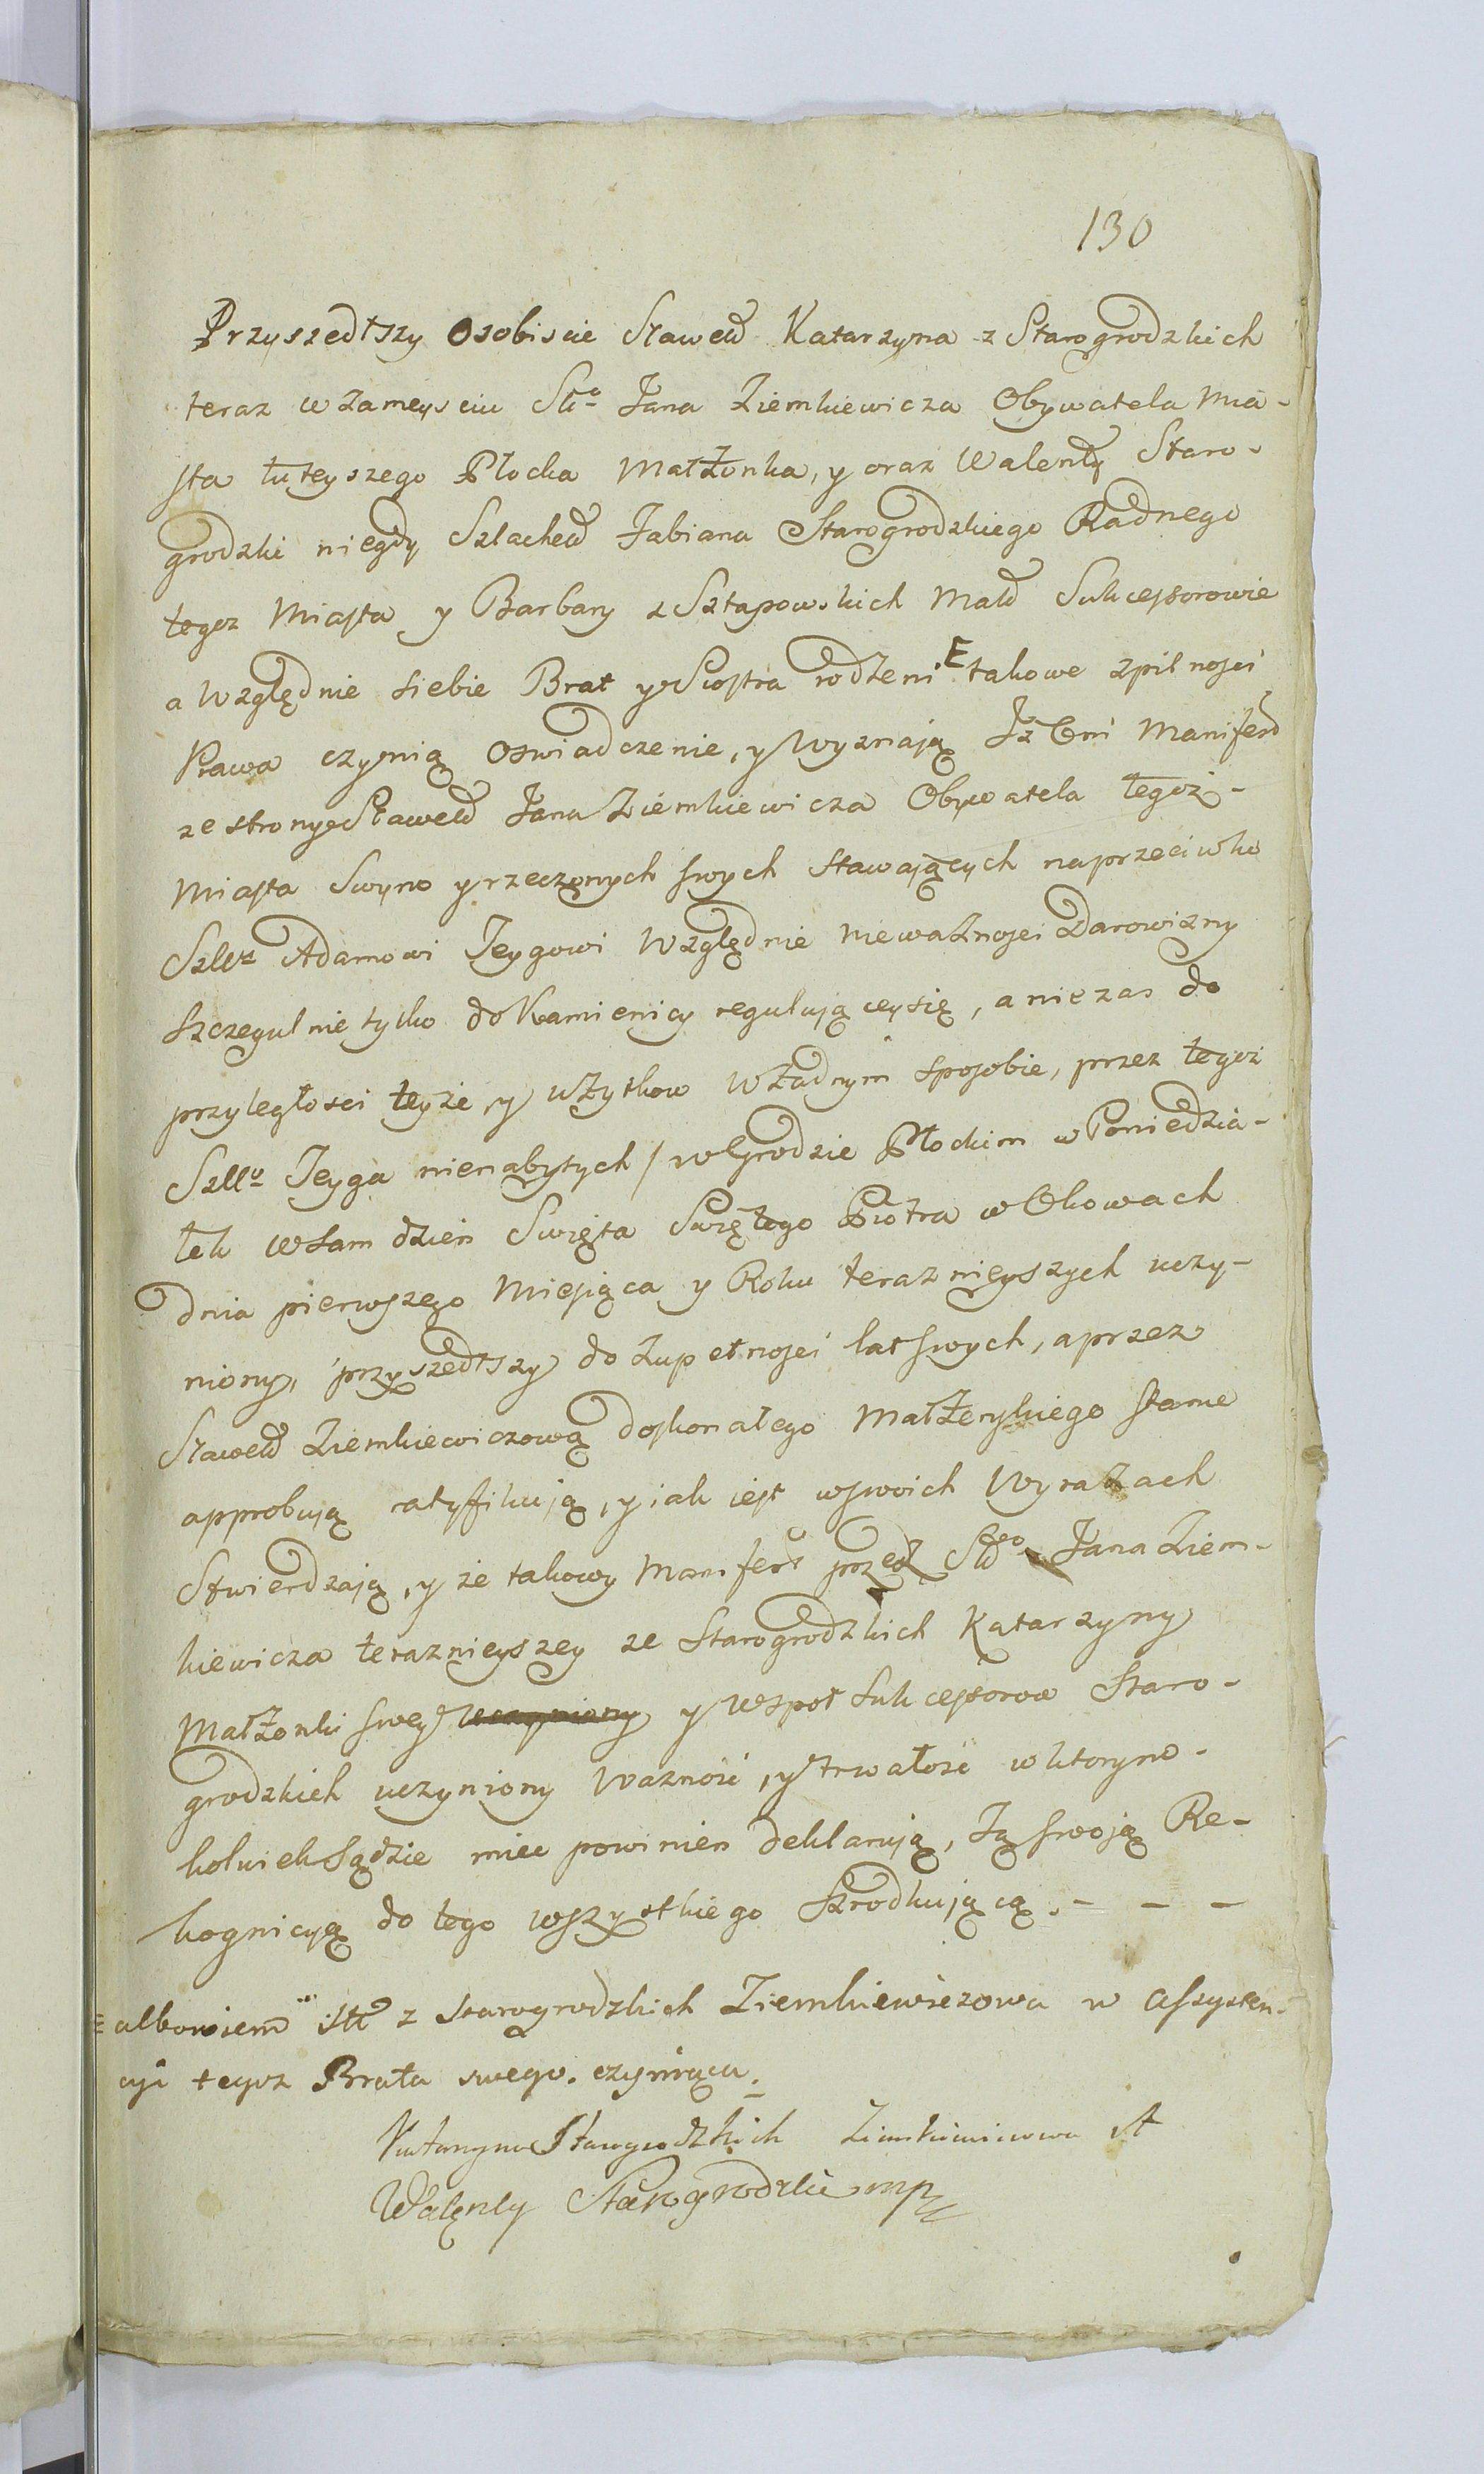 130
Przyszedłszy Osobiscie Sławetd Katarzyna z Starogrodzkich
teraz w Zameysciu Sła Jana Ziemkiewicza Obywatela Mia-
sta tuteyszego Płocka Małżonka, y oraz Walenty Staro-
grodzki niegdy Szlachetd Fabiana Starogrodzkiego Radnego
tegoz Miasta y Barbary z Sztapowskich Małd Sukcessorowie
a względnie siebie Brat y Siostra rodzeni E takowe z pilnosci
Prawa czynią Oswiadczenie, y wyznają Iż Oni Manifest
ze strony Sławetd Jana Ziemkiewicza Obywatela tegoż-
Miasta Swym y rzeczonych swych stawających naprzeciwko
Adamowi Jeygowi względnie nieważnosci Darowizny
szczegulnie tylko do Kamienicy regulującey się, a nie zas do
przyległosci teyże, y użytkow w żadnym sposobie, przez tegoż
Jeyga nienabytych / w Grodzie Płockim w Poniedzia-
łek w sam dzień Swięta Swiętego Piotra w Okowach
dnia pierwszego Miesiąca y Roku teraznieyszych uczy-
niony, przyszedłszy do zupełnosci lat swych, a przez
Sławetd Ziemkiewiczową doskonałego Małżenskiego stanu
approbują ratyfikują, y iak iest w swoich wyrazach
Stwierdzają, y że takowy Manifest przez Jana Ziem-
kiewicza teraznieyszey ze Starogrodzkich Katarzyny
Małżonki swey uczyniony y wspoł Sukcessorow Staro-
grodzkich uczyniony ważność, y trwałość w ktorym-
kolwiek Sądzie miec powinien deklarują, Tą swoją Re-
kognicyą do tego wszystkiego szrodkującą. - - -
E albowiem z Starogrodzkich Ziemkiewiczowa w assysten-
cyi tegoz Brata swego. czyniąca.
Katarzyna Starogrodzkich Ziemkiewiczowa
Walęnty Starogrodzki mp